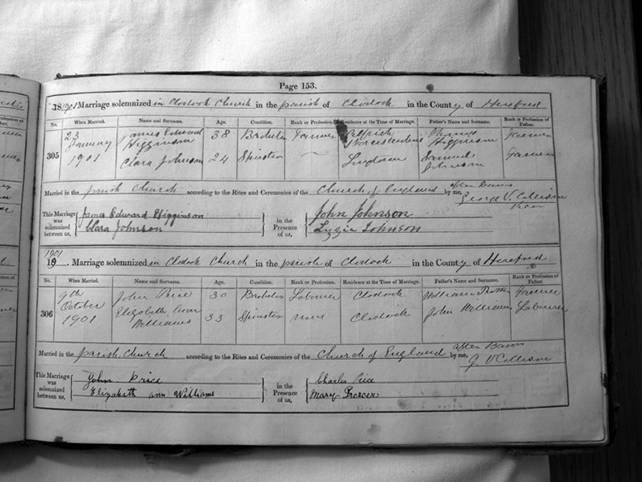 Page 153.
1901 Marriage solemnized in Clodock Church in the parish of Clodock in the County of Hereford
No. When Married. Name and Surname. Age. Condition. Rank or Profession. Residence at the Time of Marriage. Father's Name and Surname. Rank or Profession of Father.
305 23 January 1901 James Edward Higginson 38 Bachelor Farmer Thomas Higginson Farmer
Clara Johnson 24 Spinster Samuel Johnson Farmer
Married in the parish Church according to the Rites and Ceremonies of the Church of England after Banns by me,
This Marriage was solemnized between us, James Edward Higginson Clara Johnson in the Presence of us, John Johnson Lizzie Johnson
1901 Marriage solemnized in Clodock Church in the parish of Clodock in the County of Hereford
No. When Married. Name and Surname. Age. Condition. Rank or Profession. Residence at the Time of Marriage. Father's Name and Surname. Rank or Profession of Father.
306 9th October 1901 John Price 30 Bachelor Labourer Clodock William
Elizabeth Ann Williams 33 Spinster Clodock John Williams Labourer
Married in the parish Church according to the Rites and Ceremonies of the Church of England after Banns by me,
This Marriage was solemnized between us, John Price Elizabeth Ann Williams in the Presence of us, Charles Price Mary Prosser